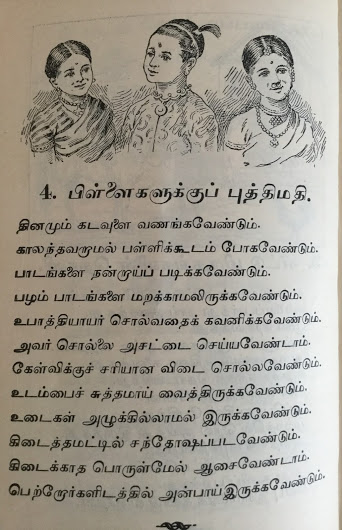 4. பிள்ளைகளுக்குப் புத்திமதி.
தினமும் கடவுளை வணங்கவேண்டும்.
காலந்தவறாமல் பள்ளிக்கூடம் போகவேண்டும்.
பாடங்களை நன்றாய்ப் படிக்கவேண்டும்.
பழம் பாடங்களை மறக்காமலிருக்கவேண்டும்.
உபாத்தியாயர் சொல்வதைக் கவனிக்கவேண்டும்.
அவர் சொல்லை அசட்டை செய்யவேண்டாம்.
கேள்விக்குச் சரியான விடை சொல்லவேண்டும்.
உடம்பைச் சுத்தமாய் வைத்திருக்கவேண்டும்.
உடைகள் அழுக்கில்லாமல் இருக்கவேண்டும்.
கிடைத்தமட்டில் சந்தோஷப்படவேண்டும்.
கிடைக்காத பொருள்மேல் ஆசைவேண்டாம்.
பெற்றோர்களிடத்தில் அன்பாய் இருக்கவேண்டும்.